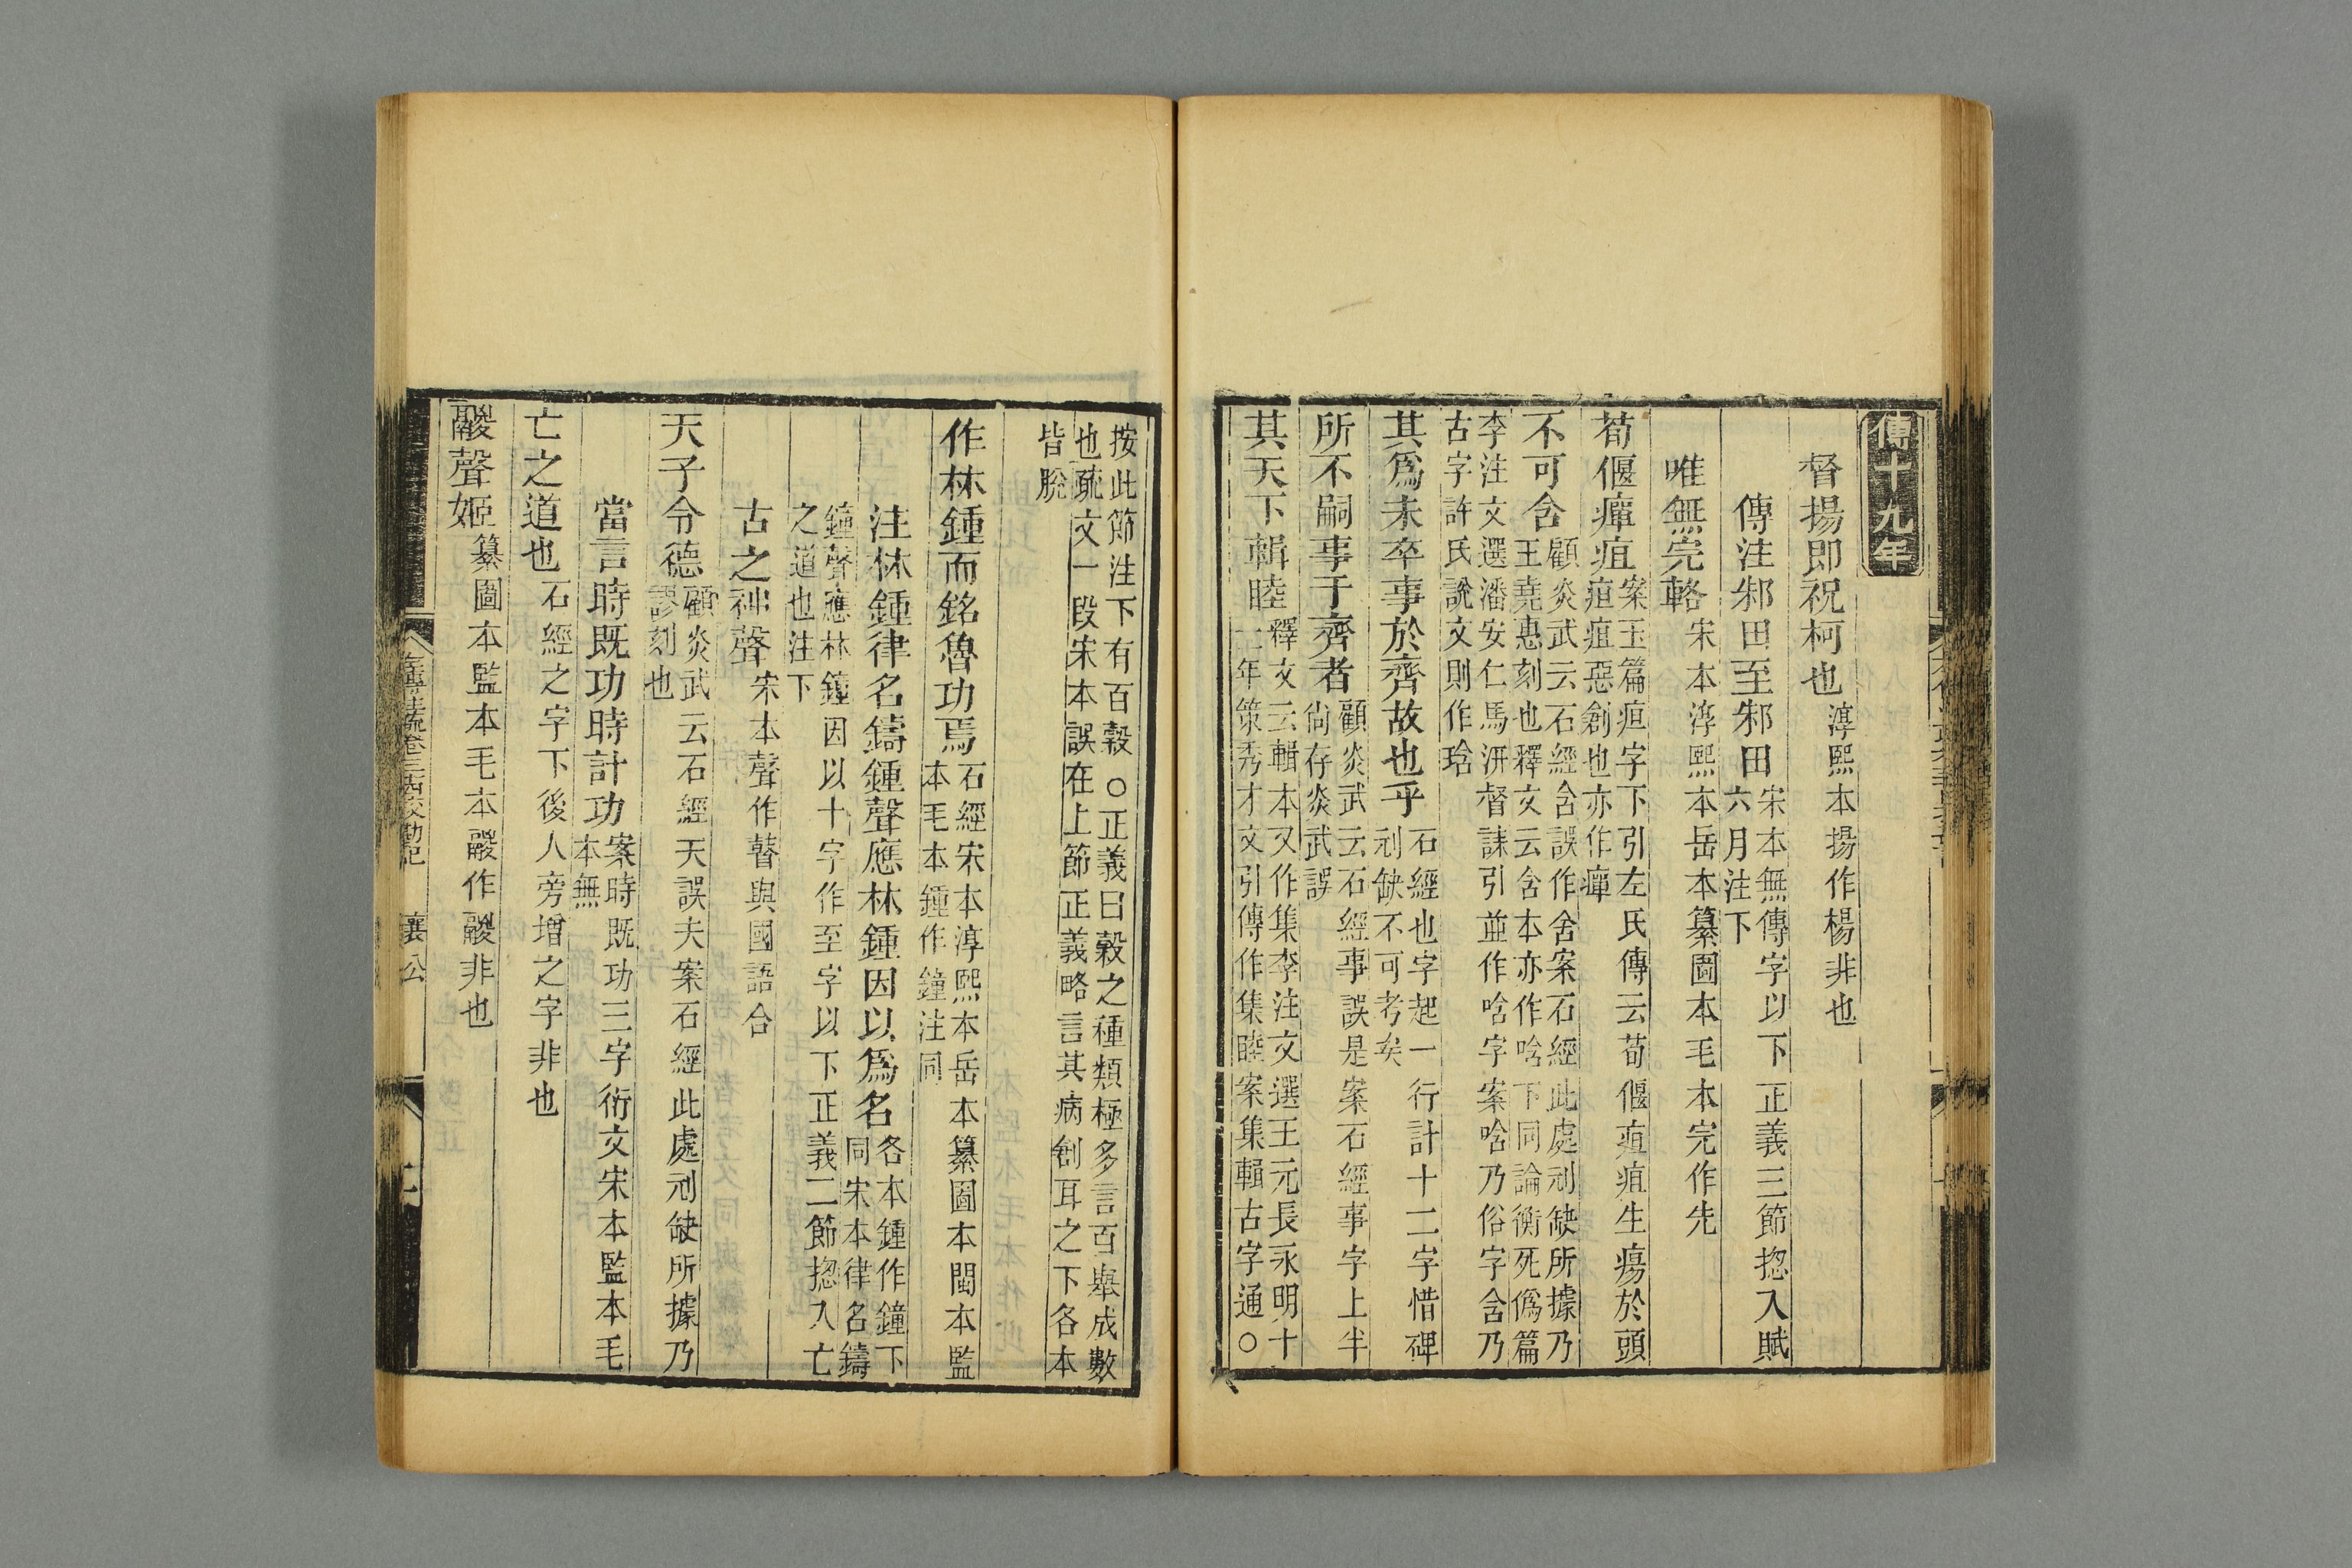 傳十九年
督揚即祝柯也淳熙本揚作楊非也
傳注邾田至邾田宋本無傳字以下正義三節揔入賦
六月注下
唯無完輅宋本淳熙本岳本纂圖本毛本完作先
荀偃癉疽案玉篇疸字下引左氏傳云荀偃疸疽生瘍於頭
疸疽惡創也亦作癉
不可含顧炎武云石經含誤作舍案石經此處刓缺所據乃
王堯惠刻也釋文云含本亦作唅下同論衡死僞篇
李注文選潘安仁馬汧督誄引並作唅字案唅乃俗字含乃
古字許氏說文則作琀
其爲未卒事於齊故也乎石經也字起一行計十二字惜碑
刓缺不可考矣
所不嗣事于齊者顧炎武云石經事誤是案石經事字上半
尚存炎武誤
其天下輯睦釋文云輯本又作集李注文選王元長永明十
一年策秀才文引傳作集睦案集輯古字通○
按此節注下有百穀○正義曰穀之種類極多言百舉成數
也疏文一段宋本誤在上節正義略言其病創耳之下各本
皆脫
作林鍾而銘魯功焉石經宋本淳熙本岳本纂圖本閩本監
本毛本鍾作鐘注同
注林鍾律名鑄鍾聲應林鍾因以爲名各本鍾作鐘下
同宋本律名鑄
鐘聲應林鐘因以十字作至字以下正義二節揔入亡
之道也注下
古之神聲宋本聲作瞽與國語合
天子令德顧炎武云石經天誤夫案石經此處刓缺所據乃
謬刻也
當言時既功時計功案時既功三字衍文宋本監本毛
本無
亡之道也石經之字下後人旁增之字非也
鬷聲姬纂圖本監本毛本鬷作鬷非也
左傳注疏卷三十四校勘記 襄公